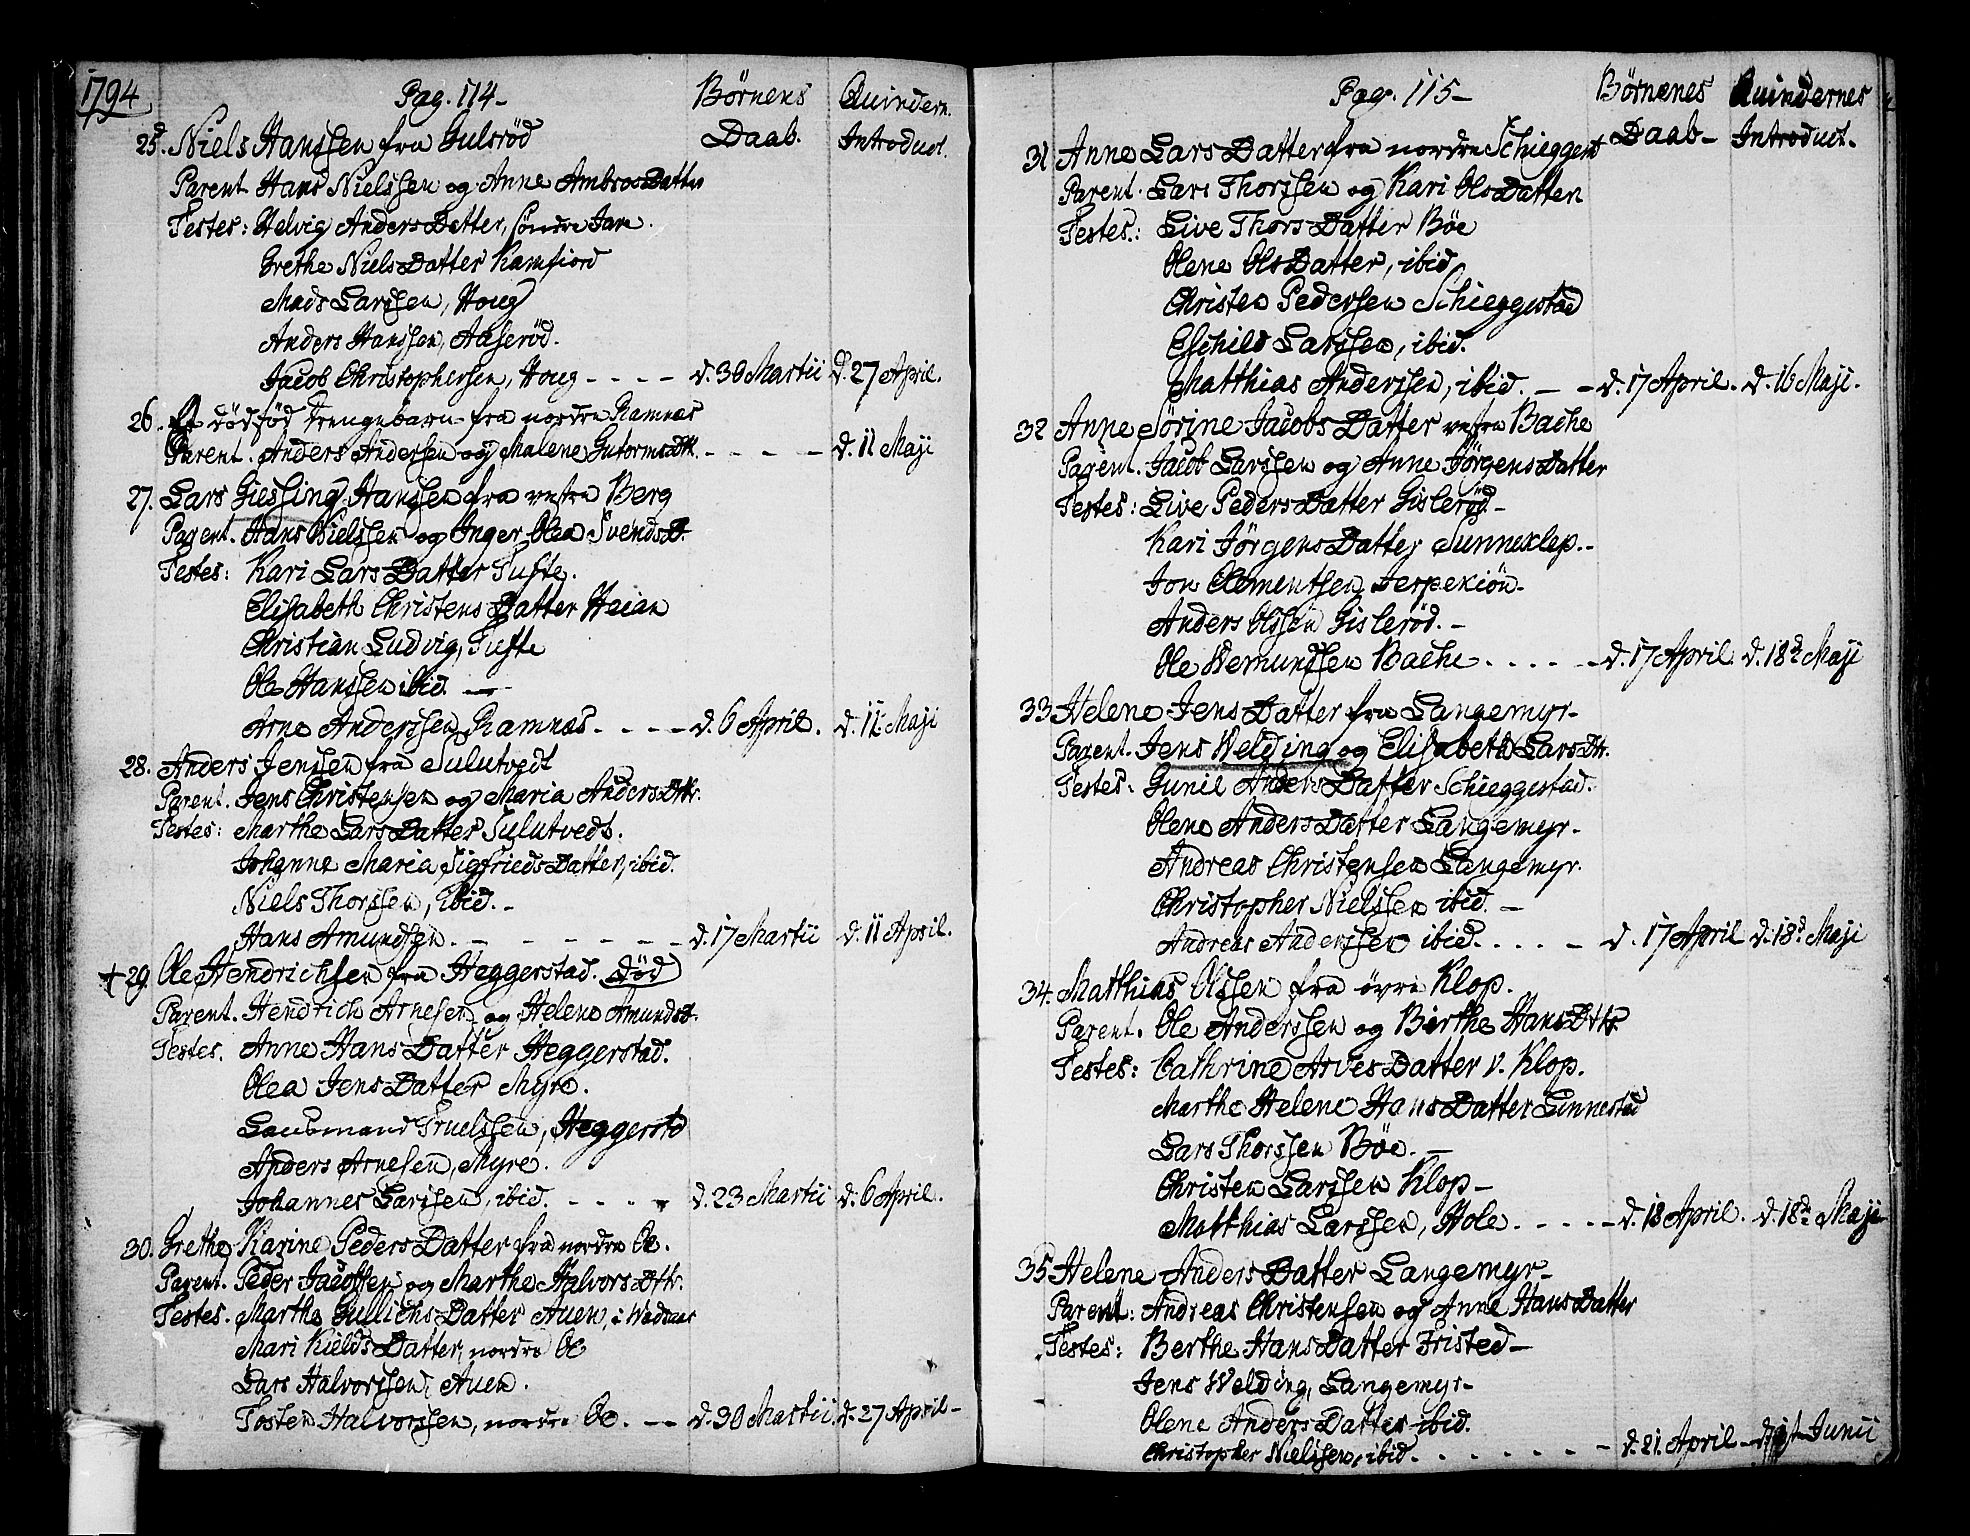 1794
Pag. 114-
Børnens Daab.
Quindern. Introduct.
25. Niels Hanssen fra Gulsröd
Parent. Hans Nielssen og Anne AmbrosDatter
Testes: Helvig AndersDatter, söndre Jare.
Grethe NielsDatter Kamfiord
Mads Larssen, Houg
Anders Hanssen, Aaseröd.
Jacob Christophersen, Houg - - - - d. 30 Martii d. 27 April.
26. Et dödföd Drengebarn fra nordre Ramnæs
Parent. Anders Andersen og Malene GutormsDtr. - - - - d. 11 Maji
27. Lars Giessing Hanssen fra vestre Berg
Parent. Hans Nielssen og Inger Olea SvendsD.
Testes: Kari LarsDatter Tufte.
Elisabeth ChristensDatter Haian
Christian Ludvig, Tufte
Ole Hanssen ibid. -
Arne Anderssen Ramnæs. - - - - d. 6 April. d. 11 Maji
28. Anders Jenssen fra Sulutvedt
Parent. Jens Christensen og Maria AndersDtr.
Testes: Marthe LarsDatter Sulutvedt.
Johanne Maria SigfriedsDatter, ibid.
Niels Thorssen, ibid. -
Hans Amundsen. - - - - - - d. 17 Martii d. 11 April.
† 29. Ole Hendrichsen fra Heggerstad. död
Parent. Hendrich Arnesen og Helene AmundsD.
Testes. Anne HansDatter Heggerstad.
Olea JensDatter Myre.
Laudsmand Truelssen, Heggerstd
Anders Arnesen, Myre.
Johannes Larssen, ibid. - - - - d. 23 Martii d. 6 April.
30. Grethe Karine PedersDatter fra nordre Oe.
Parent. Peder Jacobsen og Marthe HalvorsDtr.
Testes. Marthe GullichsDatter Auen, i
Mari KieldsDatter, nordre Oe
Lars Halvorssen, Auen.
Tosten Halvorssen, nordre Oe. - - d. 30 Martii. d. 27 April -
Pag. 115-
Børnenes Daab-
Quindernes Introduct.
31 Anne LarsDatter fra nordre Schieggest
Parent. Lars Thorssen og Kari OlsDatter
Testes.: Live ThorsDatter Böe
Olene OlsDatter, ibid
Christen Pedersen Schieggestad
Eschild Larssen, ibid.
Matthias Anderssen, ibid. - - d. 17 April. d. 16 Maji.
32 Anne Sörine JacobsDatter vestre Bache
Parent. Jacob Larssen og Anne JörgensDatter
Testes: Live PedersDatter Gisleröd -
Kari JörgensDatter Sunneklep. -
Jon Clementsen Jerpekiön -
Anders Olssen Gisleröd. -
Ole Wemundssen Bache . - - - - d. 17 April. d. 18d Maji
33. Helene JensDatter fra Langemyr-
Parent. Jens Welding og Elisabeth LarsDtr.
Testes: Gunil AndersDatter Schieggestad.
Olene AndersDatter Langemyr-
Andreas Christensen Langemyr.
Christopher Nielssen ibid. -
Andreas Anderssen ibid. . . . - d. 17 April d. 18d. Maji
34. Matthias Olssen fra övre Klop.
Parent. Ole Anderssen og Berthe HansDtr
Testes: Cathrine ArvesDatter v. Klop.
Marthe Helene HansDatter Linnestad
Lars Thorssen Böe. -
Christen Larssen Klop-
Matthias Larssen, Hole. - - - - d. 18 April. d. 18d. Maji
35 Helene AndersDatter Langemyr-
Parent: Andreas Christensen og Anne HansDatter
Testes: Berthe HansDatter Fristed-
Jens Welding, Langemyr-
Olene AndersDatter ibid.
Christopher Nielssen, ibid. . - - - - - d. 21. April - d. 1st Junii